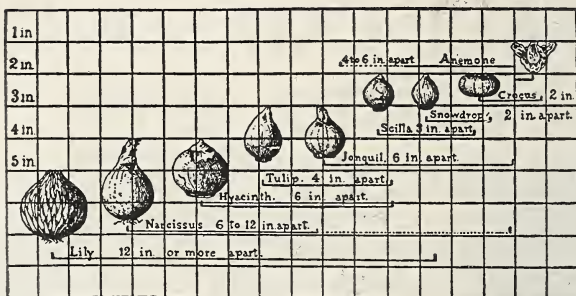 1 in
2 in
4 to 6 in apart Anemone
3 in
Crocus, 2 in
Snowdrop, 2 in. apart.
4 in
Scilla 3 in. apart.
5 in
Jonquil. 6 in. apart.
Tulip. 4 in. apart.
Hyacinth. 6 in. apart.
Narcissus 6 to 12 in. apart.
Lily 12 in. or more apart.